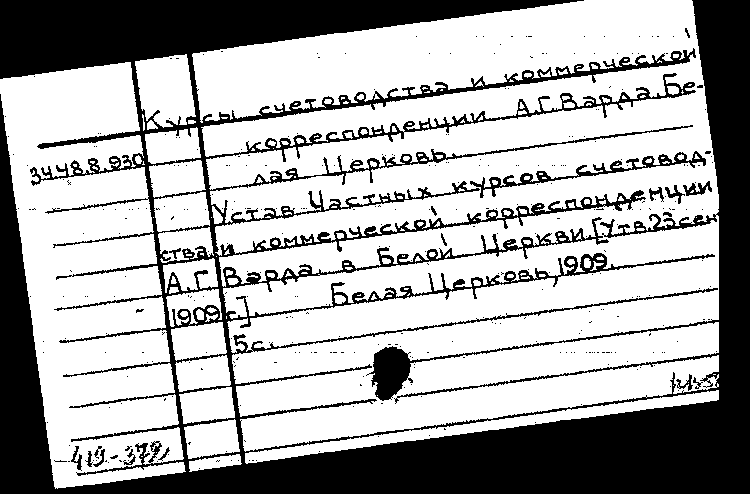 Курсы счетоводства и коммерческой
корреспонденции А.Г.Варда. Бе-
3448.8.930
лая Церковь.
Устав Частных курсов счетовод-
ства и коммерческой корреспонденции
А.Г. Варда в Белой Церкви. [Утв. 23 сент
1909 г.]. Белая Церковь, 1909.
5 с.
419-379